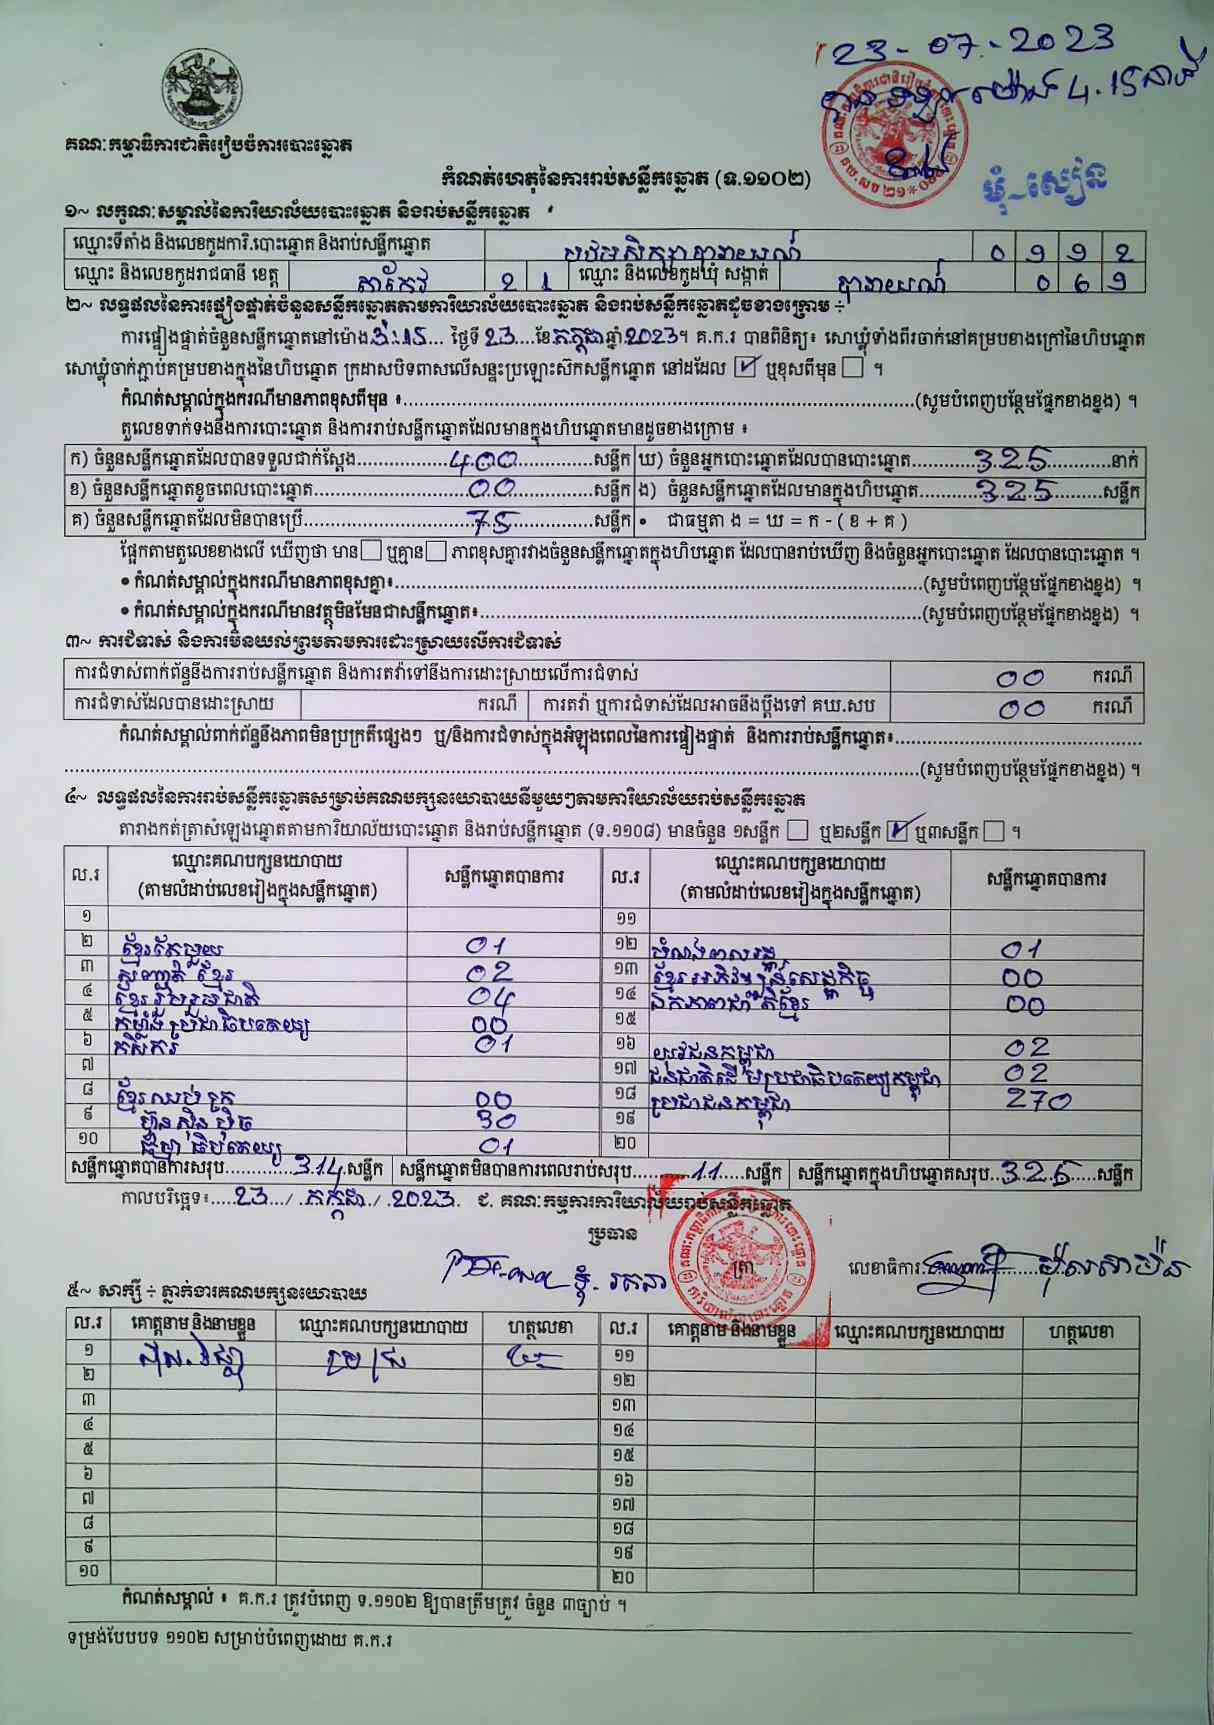 23-07-2023
ម៉ោង 4.15 នាទី
គណៈកម្មាធិការជាតិរៀបចំការបោះឆ្នោត
កំណត់ហេតុនៃការរាប់សន្លឹកឆ្នោត (ទ.១១០២)
១~ លក្ខណៈសម្គាល់នៃការិយាល័យបោះឆ្នោត និងរាប់សន្លឹកឆ្នោត
ឈ្មោះទីតាំង និងលេខកូដការិ.បោះឆ្នោត និងរាប់សន្លឹកឆ្នោត បឋមសិក្សាបារាយណ៍ 0 9 9 2
ឈ្មោះ និងលេខកូដរាជធានី ខេត្ត តាកែវ 2 1 ឈ្មោះ និងលេខកូដឃុំ សង្កាត់ បារាយណ៍ 0 6 9
២~ លទ្ធផលនៃការផ្ទៀងផ្ទាត់ចំនួនសន្លឹកឆ្នោតតាមការិយាល័យបោះឆ្នោត និងរាប់សន្លឹកឆ្នោតដូចខាងក្រោម ÷
ការផ្ទៀងផ្ទាត់ចំនួនសន្លឹកឆ្នោតនៅម៉ោង 3:15... ថ្ងៃទី 23....ខែ កក្កដា ឆ្នាំ 2023។ គ.ក.រ បានពិនិត្យ៖ សោឃ្លុំទាំងពីរចាក់នៅគម្របខាងក្រៅនៃហិបឆ្នោត
សោឃ្លុំចាក់ភ្ជាប់គម្របខាងក្នុងនៃហិបឆ្នោត ក្រដាសបិទពាសលើសន្ទះប្រឡោះស៊កសន្លឹកឆ្នោត នៅដដែល ☑ ឬខុសពីមុន ☐ ។
កំណត់សម្គាល់ក្នុងករណីមានភាពខុសពីមុន ៖..........(សូមបំពេញបន្ថែមផ្នែកខាងខ្នង) ។
តួលេខទាក់ទងនឹងការបោះឆ្នោត និងការរាប់សន្លឹកឆ្នោតដែលមានក្នុងហិបឆ្នោតមានដូចខាងក្រោម ៖
ក) ចំនួនសន្លឹកឆ្នោតដែលបានទទួលជាក់ស្តែង..........400..........សន្លឹក ឃ) ចំនួនអ្នកបោះឆ្នោតដែលបានបោះឆ្នោត..........325..........នាក់
ខ) ចំនួនសន្លឹកឆ្នោតខូចពេលបោះឆ្នោត..........00..........សន្លឹក ង) ចំនួនសន្លឹកឆ្នោតដែលមានក្នុងហិបឆ្នោត..........325..........សន្លឹក
គ) ចំនួនសន្លឹកឆ្នោតដែលមិនបានប្រើ..........75..........សន្លឹក • ជាធម្មតា ង = ឃ = ក - ( ខ + គ )
ផ្អែកតាមតួលេខខាងលើ ឃើញថា មាន ☐ ឬគ្មាន ☐ ភាពខុសគ្នារវាងចំនួនសន្លឹកឆ្នោតក្នុងហិបឆ្នោត ដែលបានរាប់ឃើញ និងចំនួនអ្នកបោះឆ្នោត ដែលបានបោះឆ្នោត ។
• កំណត់សម្គាល់ក្នុងករណីមានភាពខុសគ្នា៖..........(សូមបំពេញបន្ថែមផ្នែកខាងខ្នង) ។
• កំណត់សម្គាល់ក្នុងករណីមានវត្ថុមិនមែនជាសន្លឹកឆ្នោត៖..........(សូមបំពេញបន្ថែមផ្នែកខាងខ្នង) ។
៣~ ការជំទាស់ និងការមិនយល់ព្រមតាមការដោះស្រាយលើការជំទាស់
ការជំទាស់ពាក់ព័ន្ធនឹងការរាប់សន្លឹកឆ្នោត និងការតវ៉ាទៅនឹងការដោះស្រាយលើការជំទាស់ 00 ករណី
ការជំទាស់ដែលបានដោះស្រាយ ករណី ការតវ៉ា ឬការជំទាស់ដែលអាចនឹងប្តឹងទៅ គឃ.សប 00 ករណី
កំណត់សម្គាល់ពាក់ព័ន្ធនឹងភាពមិនប្រក្រតីផ្សេងៗ ឬ/និងការជំទាស់ក្នុងអំឡុងពេលនៃការផ្ទៀងផ្ទាត់ និងការរាប់សន្លឹកឆ្នោត៖..........
..........(សូមបំពេញបន្ថែមផ្នែកខាងខ្នង) ។
៤~ លទ្ធផលនៃការរាប់សន្លឹកឆ្នោតសម្រាប់គណបក្សនយោបាយនីមួយៗតាមការិយាល័យរាប់សន្លឹកឆ្នោត
តារាងកត់ត្រាសំឡេងឆ្នោតតាមការិយាល័យបោះឆ្នោត និងរាប់សន្លឹកឆ្នោត (ទ.១១០៨) មានចំនួន ១សន្លឹក ☐ ឬ២សន្លឹក ☑ ឬ៣សន្លឹក ☐ ។
ល.រ ឈ្មោះគណបក្សនយោបាយ (តាមលំដាប់លេខរៀងក្នុងសន្លឹកឆ្នោត) សន្លឹកឆ្នោតបានការ ល.រ ឈ្មោះគណបក្សនយោបាយ (តាមលំដាប់លេខរៀងក្នុងសន្លឹកឆ្នោត) សន្លឹកឆ្នោតបានការ
១ ១១
២ ខ្មែរតែមួយ 01 ១២ សំណង់ពាសរដ្ឋ 01
៣ ស្រលាញ់ ខ្មែរ 02 ១៣ ខ្មែរអភិវឌ្ឍន៍សេដ្ឋកិច្ច 00
៤ ខ្មែររួបរួមជាតិ 04 ១៤ ឯកភាពជាតិខ្មែរ 00
៥ កម្លាំងប្រជាធិបតេយ្យ 00 ១៥
៦ កសិករ 01 ១៦ យុវជនកម្ពុជា 02
៧ ១៧ ជនជាតិដើមប្រជាធិបតេយ្យកម្ពុជា 02
៨ ខ្មែរឈប់ក្រ 00 ១៨ ប្រជាជនកម្ពុជា 270
៩ ហ៊្វុនស៊ិនប៉ិច 30 ១៩
១០ ធម្មាធិបតេយ្យ 01 ២០
សន្លឹកឆ្នោតបានការសរុប..........314.សន្លឹក សន្លឹកឆ្នោតមិនបានការពេលរាប់សរុប..........11.....សន្លឹក សន្លឹកឆ្នោតក្នុងហិបឆ្នោតសរុប..325.....សន្លឹក
កាលបរិច្ឆេទ៖....23.../. កក្កដា./..2023. ជ. គណៈកម្មការការិយាល័យរាប់សន្លឹកឆ្នោត
ប្រធាន
ត្រា
លេខាធិការ
៥~ សាក្សី ÷ ភ្នាក់ងារគណបក្សនយោបាយ
ល.រ គោត្តនាម និងនាមខ្លួន ឈ្មោះគណបក្សនយោបាយ ហត្ថលេខា ល.រ គោត្តនាម និងនាមខ្លួន ឈ្មោះគណបក្សនយោបាយ ហត្ថលេខា
១ ១១
២ ១២
៣ ១៣
៤ ១៤
៥ ១៥
៦ ១៦
៧ ១៧
៨ ១៨
៩ ១៩
១០ ២០
កំណត់សម្គាល់ ៖ គ.ក.រ ត្រូវបំពេញ ទ.១១០២ ឱ្យបានត្រឹមត្រូវ ចំនួន ៣ច្បាប់ ។
ទម្រង់បែបបទ ១១០២ សម្រាប់បំពេញដោយ គ.ក.រ